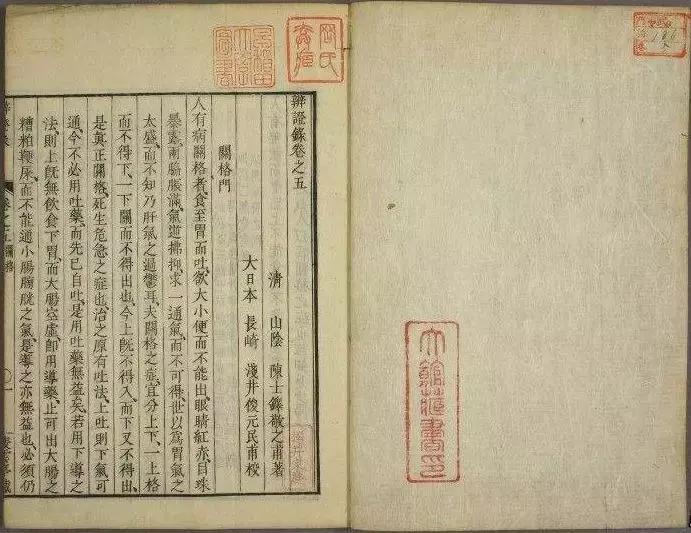 辨證錄卷之五
清 山陰 陳士鐸敬之甫著
大日本 長崎 淺井俊元民甫校
關格門
人有病關格者食至胃而吐欲大小便而不能出眼睛紅赤目珠
暴露兩脇脹滿氣逆拂抑求一通氣而不可得世以爲胃氣之
太盛而不知乃肝氣之過鬱耳夫關格之症宜分上下一上格
而不得下一下關而不得出也今上旣不得入而下又不得出
是眞正關格死生危急之症也治之原有吐法上吐則下氣可
通今不必用吐藥而先已自吐是用吐藥無益矣若用下導之
法則上旣無飮食下胃而大腸空虛卽用導藥止可出大腸之
糟粕鞕屎而不能通小腸膀胱之氣是導之亦無益也必須仍